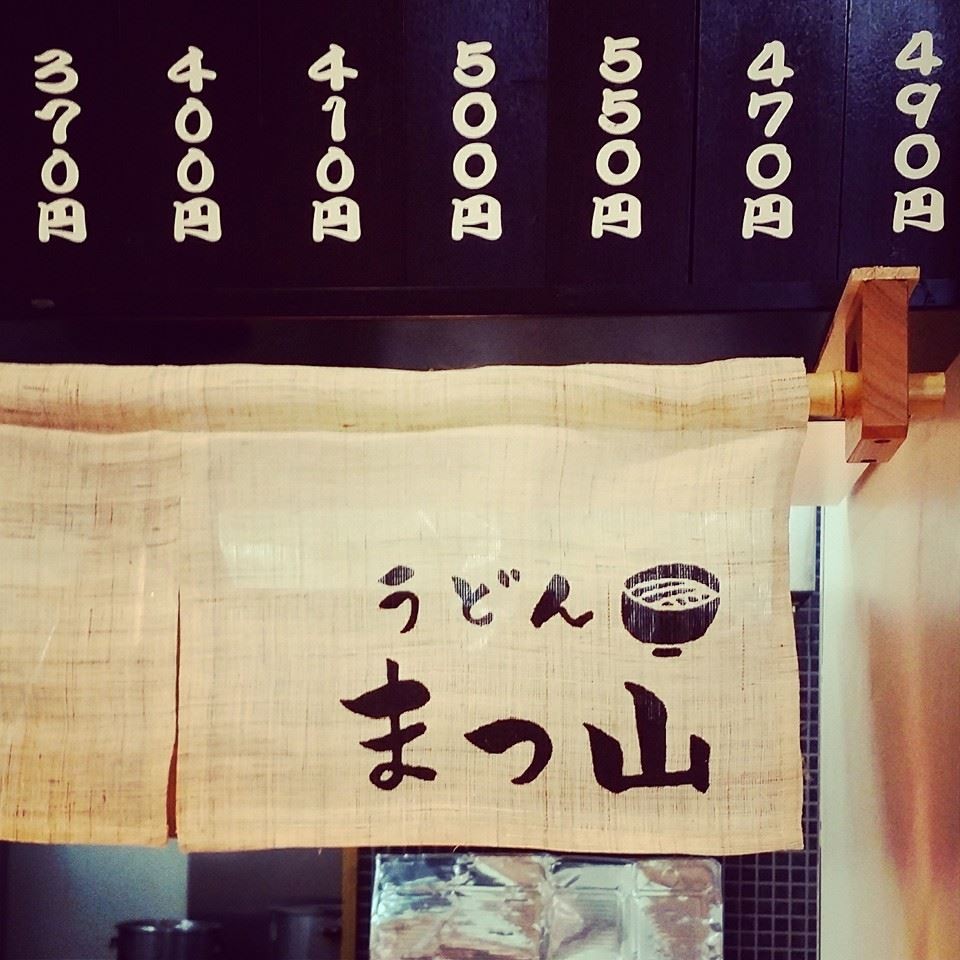 370円
400円
410円
500円
550円
470円
490円
うどん
まつ山